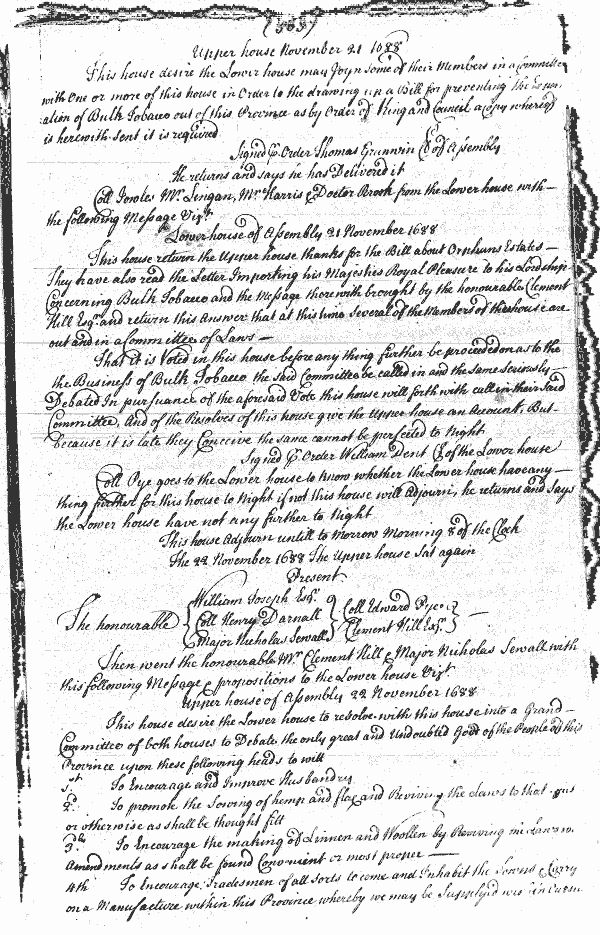 Upper house November 21 1688
This house desire the Lower house may Joyn some of their Members in a Committee
with One or more of this house in Order to the drawing up a Bill for preventing the
ation of Bulk Tobacco out of this Province as by Order of King and Council a Copy whereof
is herewith Sent it is required
Signed P. Order Thomas Grunwin Cl of Assembly
He returns and says he has Delivered it
Coll Jowles Mr. Lingan, Mr. Harris & Doctor Brook from the Lower house with
the following Message Vizt.
Lower house of Assembly 21 November 1688
This house return the Upper house thanks for the Bill about Orphans Estates
They have also read the Letter Importing his Majesties Royal Pleasure to his Lordship
Concerning Bulk Tobacco and the Message therewith brought by the honourable Clement
Hill Esqr. and return this Answer that at this time Several of the Members of this house are
out and in a Committee of Laws
That it is Voted in this house before any thing further be proceeded on as to the
the Business of Bulk Tobacco the said Committee be called in and the same seriously
Debated In pursuance of the aforesaid Vote this house will forth with call in their Said
Committee, And of the Resolves of this house give the Upper house an Account, But
because it is late they Conceive the same cannot be perfected to Night
Signed P. Order William Dent Cl of the Lower house
Coll Pye goes to the Lower house to Know whether the Lower house have any
thing further for this house to Night if not this house will Adjourn, he returns and Says
the Lower house have not any further to Night
This house Adjourn untill to Morrow Morning 8 of the Clock
The 22 November 1688 The Upper house Sat again
Present
The honourable
William Joseph Esqr.
Coll Henry Darnall
Major Nicholas Sewall
Coll Edward Pye
Clement Hill Esqr.
Then went the honourable Mr. Clement Hill & Major Nicholas Sewall with
this following Message & propositions to the Lower house Vizt.
Upper house of Assembly 22 November 1688
This house desire the Lower house to resolve with this house into a Grand
Committee of both houses to Debate the only great and Undoubted Good of the People of this
Province upon these following heads to will
1st To Encourage and Improve Husbandry
2d. To promote the Sowing of hemp and flax and Reviving the Laws to that
or otherwise as shall be thought fitt
3dly To Encourage the making of Linnen and Woollen by Reviving
Amendments as shall be found Convenient or most proper
4th To Encourage Tradesmen of all sorts to come and Inhabit the Towns & Carry
on a Manufacture within this Province whereby we may be